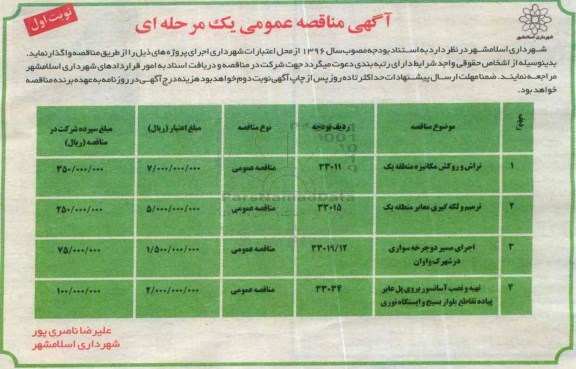 نوبت اول
آگهی مناقصه عمومی یک مرحله ای
شهرداری اسلامشهر
شهرداری اسلامشهر در نظر دارد به استناد بودجه مصوب سال ۱۳۹۶ از محل اعتبارات شهرداری اجرای پروژه های ذیل را از طریق مناقصه واگذار نماید.
بدینوسیله از اشخاص حقوقی واجد شرایط دارای رتبه بندی دعوت میگردد جهت شرکت در مناقصه و دریافت اسناد به امور قراردادهای شهرداری اسلامشهر
مراجعه نمایند. ضمنا مهلت ارسال پیشنهادات حداکثر تا ده روز پس از چاپ آگهی نوبت دوم خواهد بود هزینه درج آگهی در روزنامه به عهده برنده مناقصه
خواهد بود.
ردیف موضوع مناقصه ردیف بودجه نوع مناقصه مبلغ اعتبار (ریال) مبلغ سپرده شرکت در
مناقصه (ریال)
۱ تراش و روکش مکانیزه منطقه یک ۳۳۰۱۱ مناقصه عمومی ۷/۰۰۰/۰۰۰/۰۰۰ ۳۵۰/۰۰۰/۰۰۰
۲ ترمیم و لکه گیری معابر منطقه یک ۳۳۰۱۵ مناقصه عمومی ۵/۰۰۰/۰۰۰/۰۰۰ ۲۵۰/۰۰۰/۰۰۰
۳ اجرای مسیر دوچرخه سواری ۳۳۰۱۹/۱۲ مناقصه عمومی ۱/۵۰۰/۰۰۰/۰۰۰ ۷۵/۰۰۰/۰۰۰
در شهرک واوان
۴ تهیه و نصب آسانسور بروی پل عابر ۳۳۰۳۴ مناقصه عمومی ۲/۰۰۰/۰۰۰/۰۰۰ ۱۰۰/۰۰۰/۰۰۰
پیاده تقاطع بلوار بسیج و ایستگاه نوری
ParsNamadData
علیرضا ناصری پور
شهرداری اسلامشهر